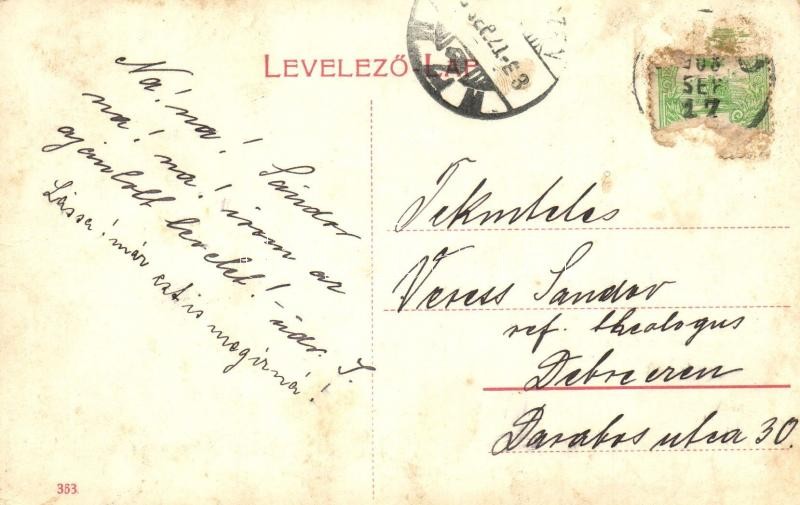 LEVELEZŐ-LAP
908
SEP
17
Ná! ná! Sándor
ná! na! irom az
ajánlott levelet! - üdv. S.
Lássa! már ezt is megirná!
Tekintetes
Veress Sandor
ref. theologus
Debreczen
Darabos utca 30.
363